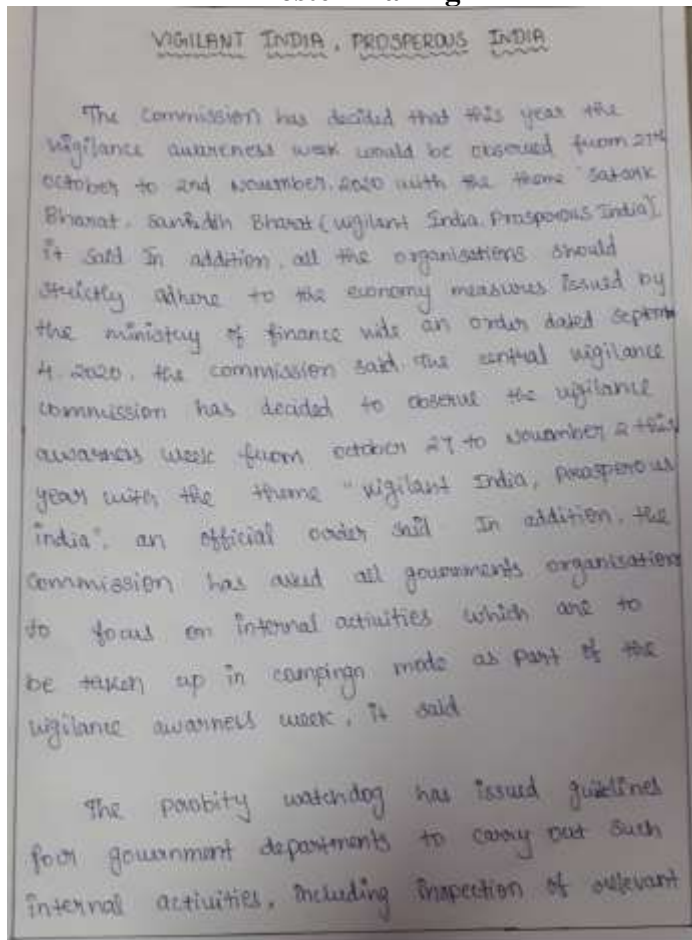 VIGILANT INDIA, PROSPEROUS INDIA
The Commission has decided that this year the
vigilance awareness week would be observed from 27th
October to 2nd November, 2020 with the theme "Satark
Bharat, Bharat (vigilant India, Prosperous India),
it said In addition, all the organisations should
strictly adhere to the economy measures issued by
the ministry of finance vide an order dated
4, 2020, the commission said. The central vigilance
commission has decided to observe the vigilance
awarness week from october 27 to November 2 this
year with the theme "vigilant India, prosperous
india", an official order said In addition, the
commission has asked all governments organisations
to focus on internal activities which are to
be taken up in campingn mode as part of the
vigilance awarness week, it said
The probity watchdog has issued guidelines
for government departments to carry out such
internal activities, including inspection of relevant